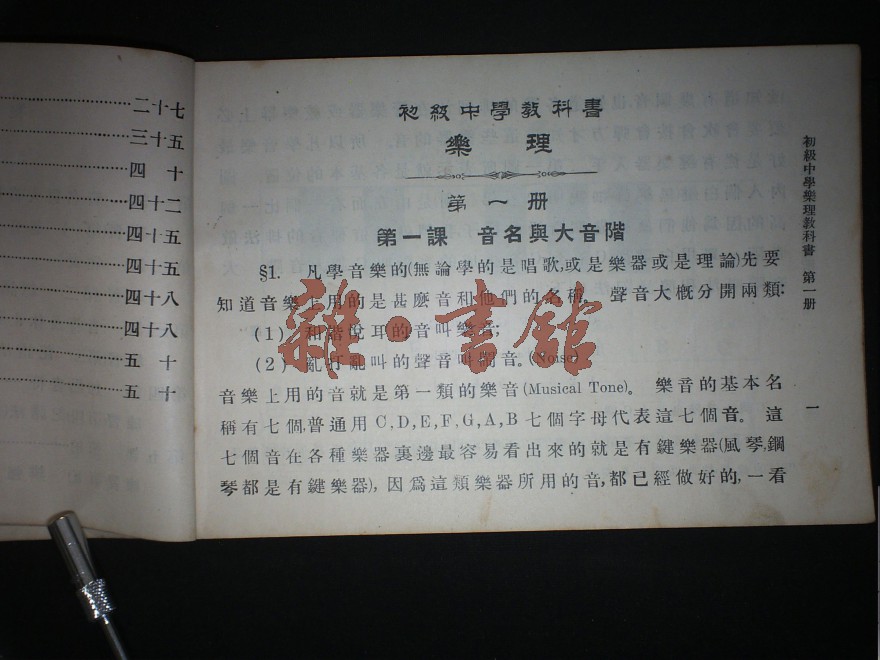 二十七
三十五
四十
四十二
四十五
四十五
四十八
四十八
五十
五十
初級中學教科書
樂理
第一册
第一課 音名與大音階
§1. 凡學音樂的(無論學的是唱歌,或是樂器或是理論)先要
知道音樂上用的是甚麼音和他們的名稱。 聲音大概分開兩類:
(1) 和諧悅耳的音叫樂音;
(2) 亂打亂叫的聲音叫鬧音。(Noise)
音樂上用的音就是第一類的樂音(Musical Tone)。 樂音的基本名
稱有七個,普通用C,D,E,F,G,A,B七個字母代表這七個音。 這
七個音在各種樂器裏邊最容易看出來的就是有鍵樂器(風琴,鋼
琴都是有鍵樂器),因爲這類樂器所用的音,都已經做好的,一看
初級中學樂理教科書 第一册
一
雜·書館